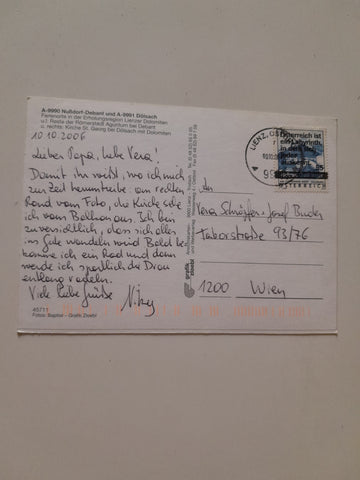 A-9990 Nußdorf-Debant und A-9991 Dölsach
Ferienorte in der Erholungsregion Lienzer Dolomiten
u.l: Reste der Römerstadt Aguntum bei Debant
u. rechts: Kirche St. Georg bei Dölsach mit Dolomiten
10.10.2006
Lieber Papa, liebe Vera!
Damit ihr wißt, wo ich mich
zur Zeit herumtreibe: am rechten
Rand vom Foto, die Kirche sehe
ich vom Balkon aus. Ich bin
zuversichtlich, dass sich alles
ins Gute wandeln wird. Bald be-
komme ich ein Rad und dann
werde ich sportlich die Drau
entlang radeln.
Viele liebe Grüße
45711
Fotos: Baptist - Grafik Zloebl
grafik zloebl
LIENZ, OS
Österreich ist
ein Labyrinth,
in dem sich
jeder
auskennt.
ÖSTERREICH
An
Vera Josef
Taborstraße 93/76
1200 Wien